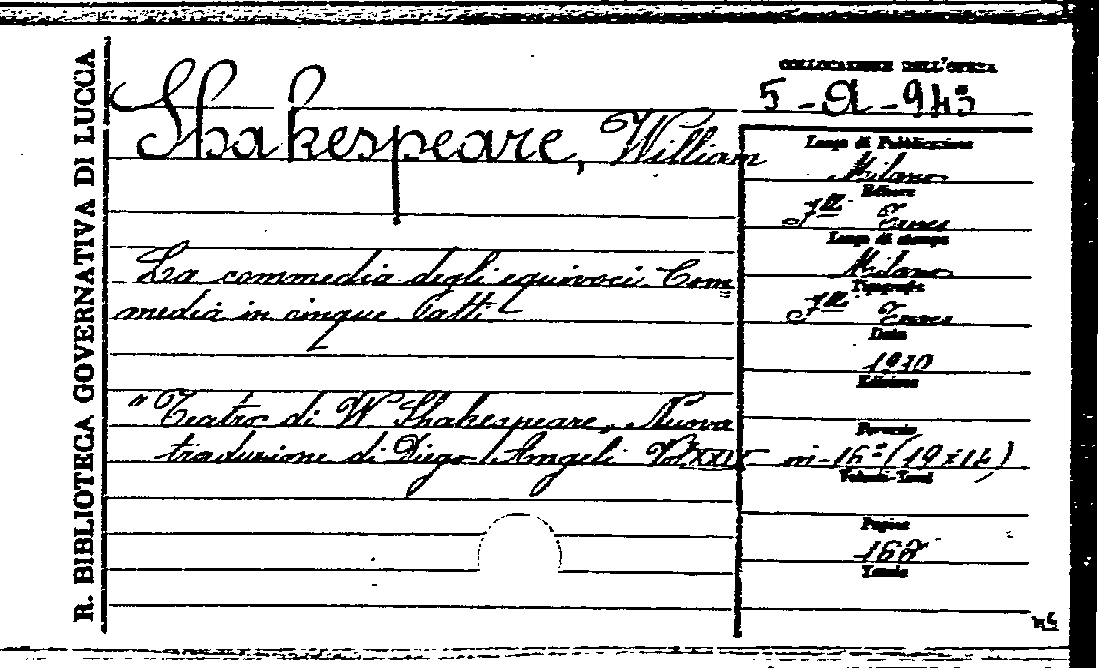 R. BIBLIOTECA GOVERNATIVA DI LUCCA
COLLOCAZIONE DELL'OPERA
5-A-943
Shakespeare, William
La commedia degli equivoci. Com=
media in cinque atti
"Teatro di W Shakespeare, Nuova
traduzione di Diego Angeli Vol
Luogo di Pubblicazione
Milano
Editore
F.lli Treves
Luogo di stampa
Milano
Tipografia
F.lli Treves
Data
1910
Edizione
Formato
in-16° (19x12)
Volumi-Tomi
Pagine
Tavole